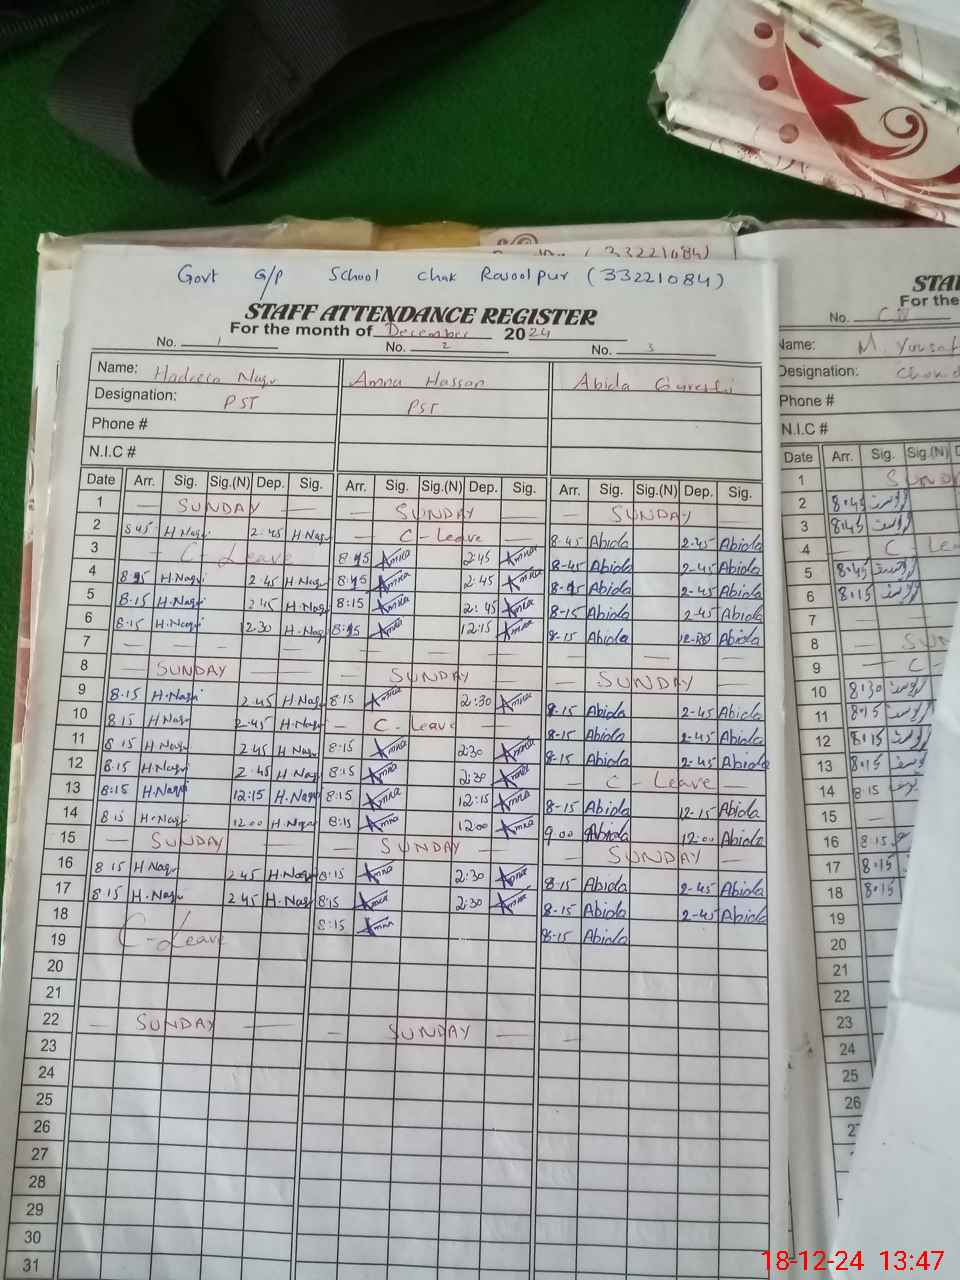 Govt G/P School Chak Rasoolpur (33221084)
STAFF ATTENDANCE REGISTER
For the month of December 2024
No. 1 No. 2 No. 3
Name: Hadeeca Naqvi Amna Hassan Abida Qureshi
Designation: PST PST
Phone #
N.I.C #
Date Arr. Sig. Sig.(N) Dep. Sig. Arr. Sig. Sig.(N) Dep. Sig. Arr. Sig. Sig.(N) Dep. Sig.
1 — SUNDAY — — SUNDAY — — SUNDAY —
2 8 45 H Naqvi 2:45 H Naqvi — C-Leave — 8-45 Abida 2-45 Abida
3 — C-Leave 8 45 Amna 2:45 Amna 8-45 Abida 2-45 Abida
4 8 15 H.Naqvi 2 45 H.Naqvi 8:15 Amna 2:45 Amna 8-15 Abida 2-45 Abida
5 8-15 H.Naqvi 2 45 H.Naqvi 8:15 Amna 2:45 Amna 8-15 Abida 2-45 Abida
6 8:15 H.Naqvi 12.30 H.Naqvi 8:15 Amna 12:15 Amna 8-15 Abida Abida
7 — — — — — — — — — — — —
8 — SUNDAY — — SUNDAY — — SUNDAY —
9 8-15 H.Naqvi 2.45 H Naqvi 8:15 Amna 2:30 Amna 8-15 Abida 2-45 Abida
10 8 15 H Naqvi 2-45 H.Naqvi — C-Leave — 8-15 Abida 2-45 Abida
11 8 15 H Naqvi 2 45 H Naqvi 8:15 Amna 2:30 Amna 8-15 Abida 2-45 Abida
12 8.15 H.Naqvi 2.45 H.Naqvi 8:15 Amna 2:30 Amna — C-Leave —
13 8:15 H.Naqvi 12:15 H.Naqvi 8:15 Amna 12:15 Amna 8-15 Abida 12-15 Abida
14 8 15 H.Naqvi 12 00 H.Naqvi 8:15 Amna 12:00 Amna 9 00 Abida 12:00 Abida
15 — SUNDAY — — SUNDAY — — SUNDAY —
16 8 15 H Naqvi 2 45 H.Naqvi 8:15 Amna 2:30 Amna 8-15 Abida 2-45 Abida
17 8.15 H.Naqvi 2 45 H.Naqvi 8:15 Amna 2:30 Amna 8-15 Abida 2-45 Abida
18 C-Leave 8:15 Amna 8-15 Abida
19
20
21
22 — SUNDAY — — SUNDAY —
23
24
25
26
27
28
29
30
31
(33221084)
STA
For the
No.
Name: M. Yousaf
Designation:
Phone #
N.I.C #
Date Arr. Sig. Sig.(N) D
1 SUND
2 8:45
3 8:45
4 — C-Lea
5 8:45
6 8:15
7 — —
8 SUN
9 — C-
10 8:30
11 8:15
12 8:15
13 8:15
14 8 15
15 —
16 8:15
17 8:15
18 8:15
19
20
21
22
23
24
25
26
18-12-24 13:47